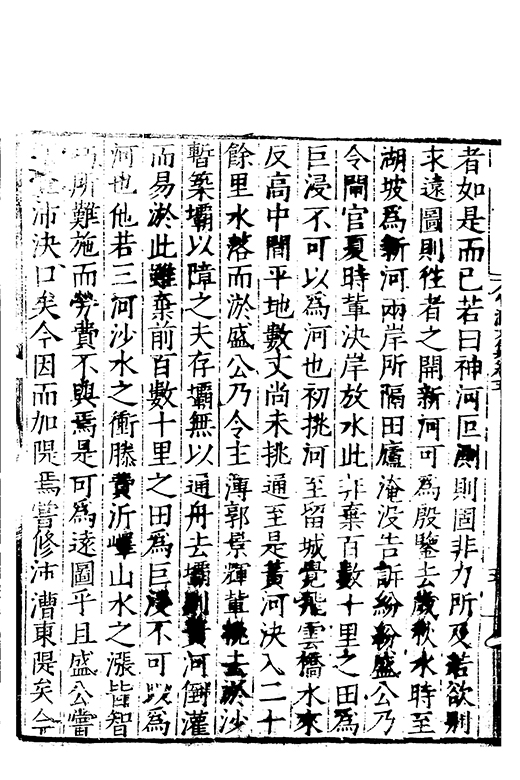 者如是而已若曰神河叵測則固非力所及若欲別
求遠圖則徃者之開新河可為殷鑒去歲秋水時至
湖坡為新河兩岸所隔田廬淹没告訴紛紛盛公乃
令閘官夏時輩決岸放水此非棄百數十里之田為
巨浸不可以為河也初挑河至留城覺飛雲橋水來
反高中間平地數丈尚未挑通至是黃河決入二十
餘里水落而淤盛公乃令主簿郭景輝輩挑去淤沙
暫築壩以障之夫存壩無以通舟去壩則黃河倒灌
而易淤此雖棄前百數十里之田為巨浸不可以為
河也他若三河沙水之衝滕費沂嶧山水之漲皆智
巧所難施而勞費不與焉是可為遠圖乎且盛公嘗
沛決口矣今因而加隄焉嘗修沛漕東隄矣今